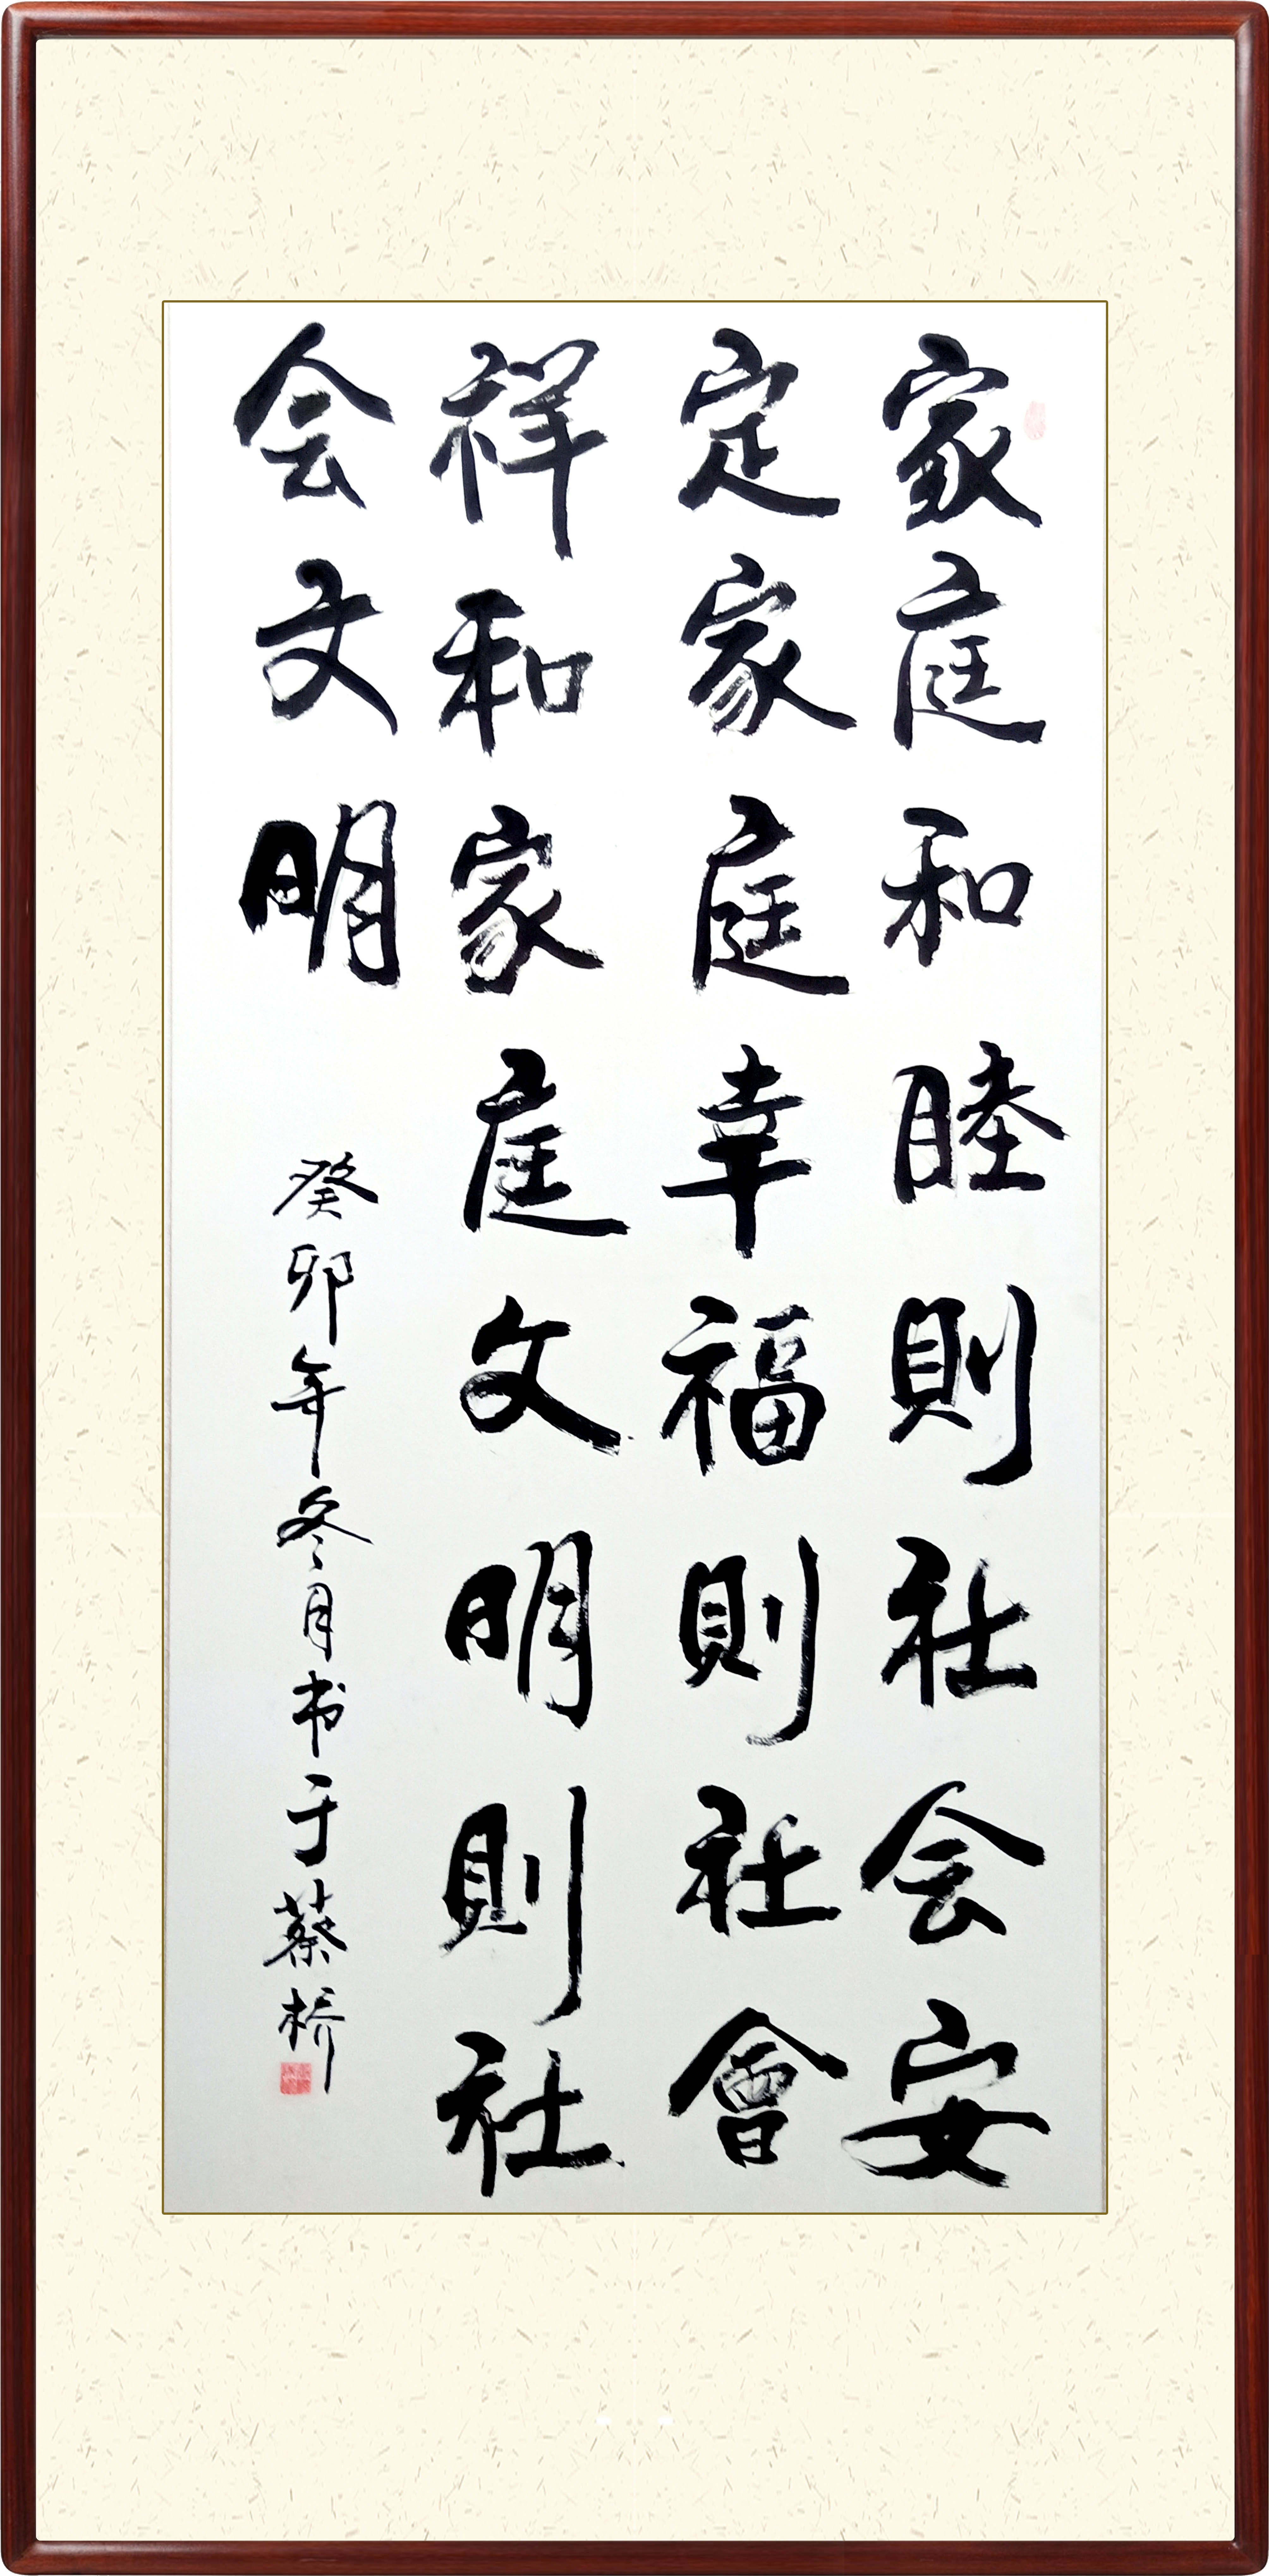 家庭和睦則社会安
定家庭幸福則社會
祥和家庭文明則社
会文明
癸卯年冬月书于蔡桥